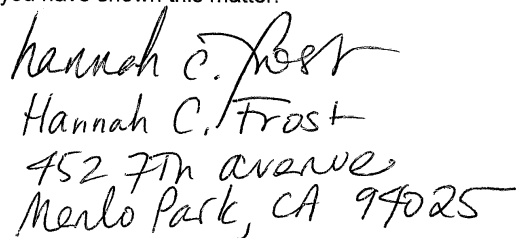 you have shown this matter.
hannah c. frost
Hannah C. Frost
452 7Th avenue
Menlo Park, CA 94025